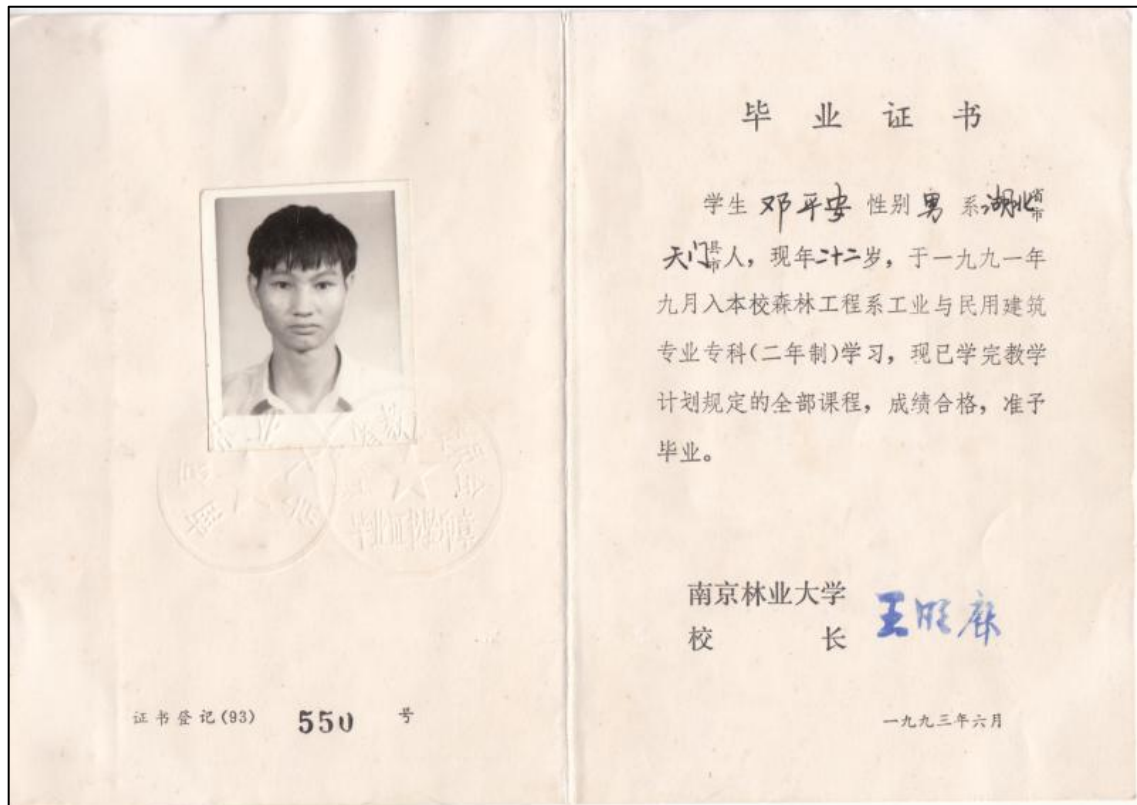 证书登记(93) 550 号
毕业证书
学生 邓平安 性别 男 系 湖北省市
天门县市人，现年二十二岁，于一九九一年
九月入本校森林工程系工业与民用建筑
专业专科(二年制)学习，现已学完教学
计划规定的全部课程，成绩合格，准予
毕业。
南京林业大学
校长 王
一九九三年六月